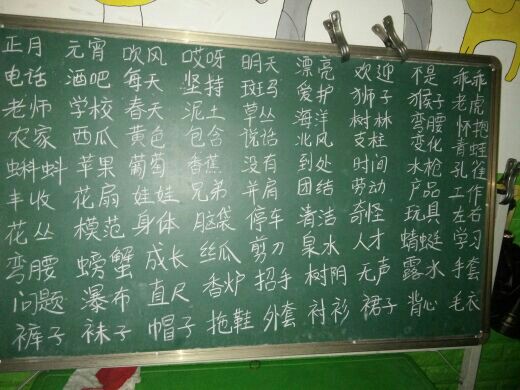 正月 元宵 吹风 哎呀 明天 漂亮 欢迎 不是 乖乖
电话 酒吧 每天 坚持 斑马 爱护 狮子 猴子 老虎
老师 学校 春天 泥土 草丛 海洋 树林 弯腰 怀抱
农家 西瓜 黄色 包含 说话 北风 支柱 变化 青蛙
蝌蚪 苹果 葡萄 香蕉 没有 到处 时间 水枪 孔雀
丰收 花扇 娃娃 兄弟 并肩 团结 劳动 产品 工作
花丛 模范 身体 脑袋 停车 清洁 奇怪 玩具 左右
弯腰 螃蟹 成长 丝瓜 剪刀 泉水 人才 蜻蜓 学习
问题 瀑布 直尺 香炉 招手 树阴 无声 露水 手套
裤子 袜子 帽子 拖鞋 外套 衬衫 裙子 背心 毛衣